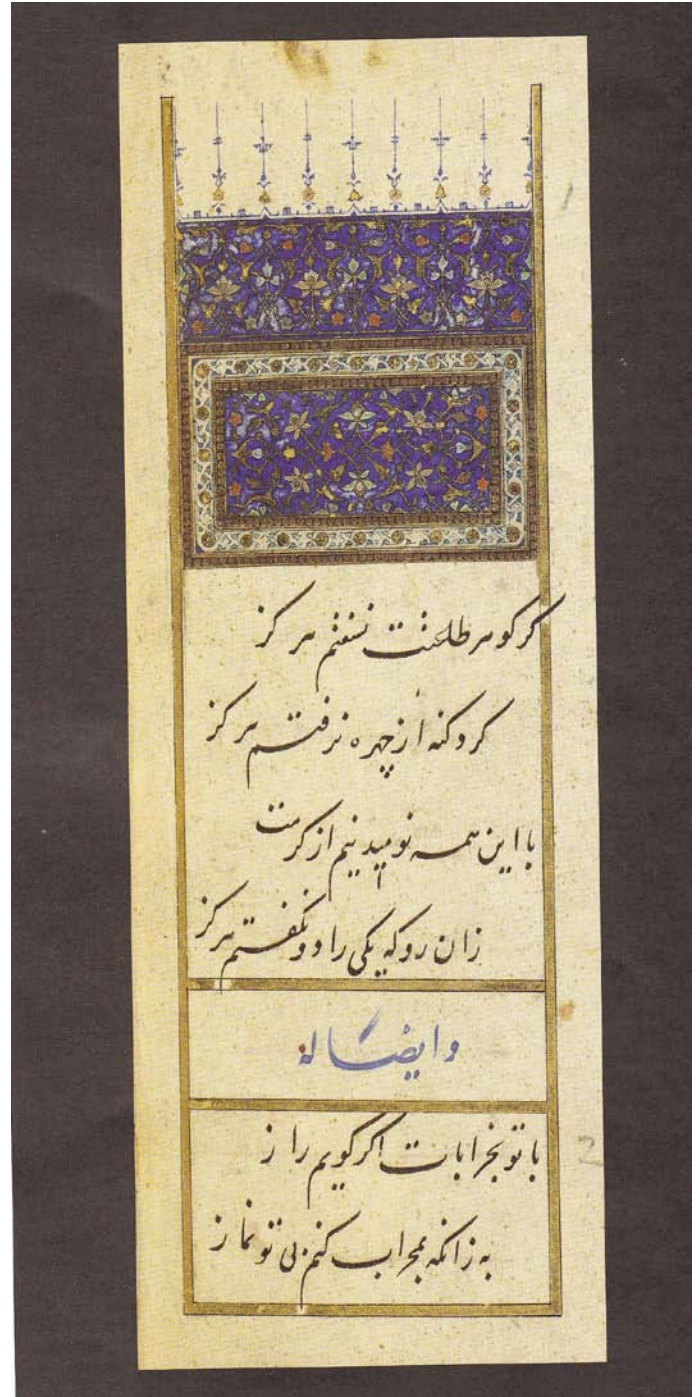 کر کوهر طاعتت نسفتم هرکز
کرد کنه از چهره نرفتم هرکز
با این همه نومید نیم از کرمت
زان رو که یکی را دو نکفتم هرکز
وایضا له
با تو بخرابات اکر کویم راز
به زانکه بمحراب کنم بی تو نماز
1
2